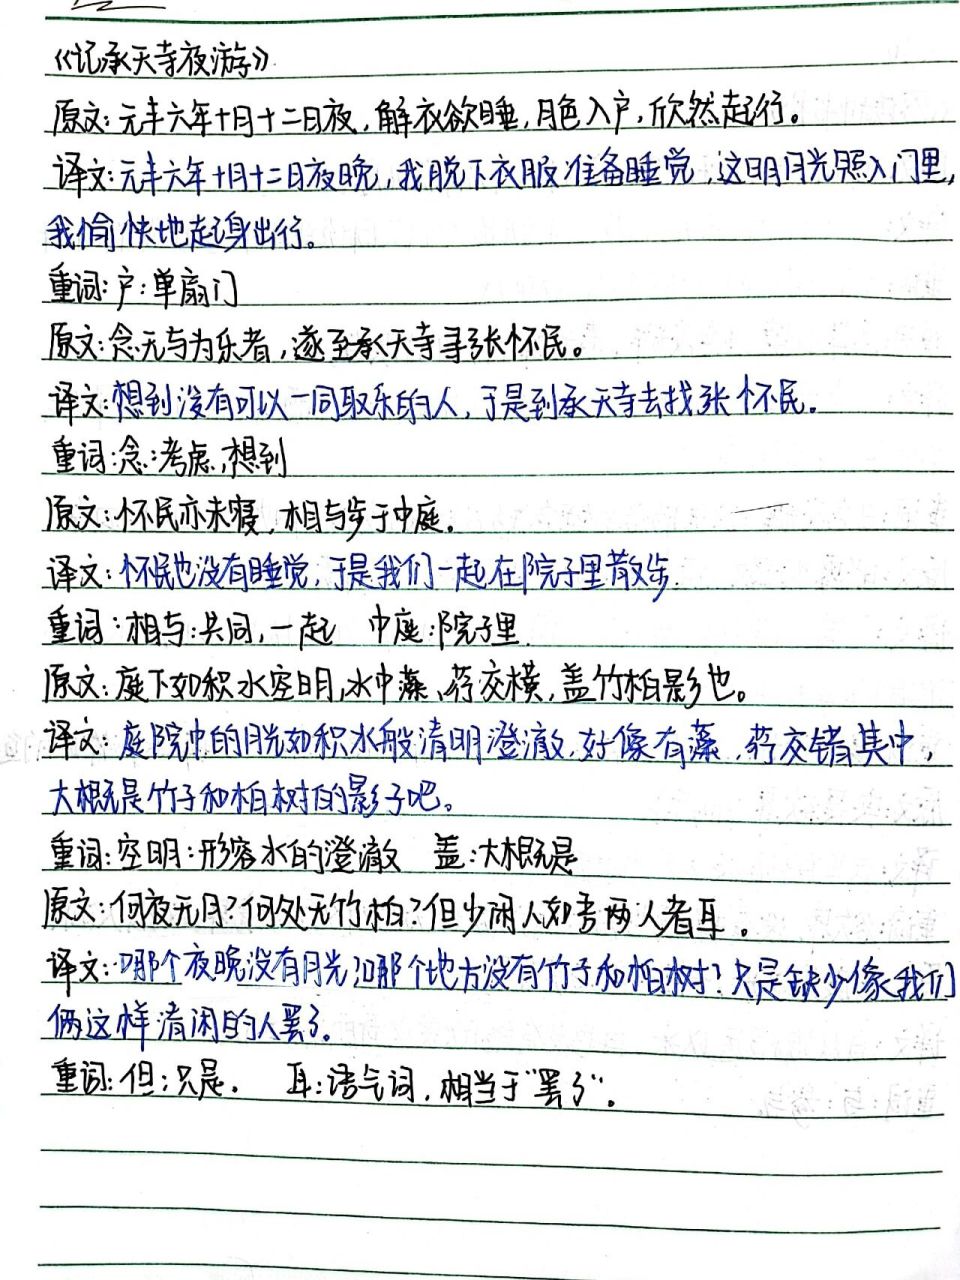 《记承天寺夜游》
原文:元丰六年十月十二日夜,解衣欲睡,月色入户,欣然起行。
译文:元丰六年十月十二日夜晚,我脱下衣服准备睡觉,这明月光照入门里,
我愉快地起身出行。
重词:户:单扇门
原文:念无与为乐者,遂至承天寺寻张怀民。
译文:想到没有可以一同取乐的人,于是到承天寺去找张怀民。
重词:念:考虑,想到
原文:怀民亦未寝,相与步于中庭。
译文:怀民也没有睡觉,于是我们一起在院子里散步.
重词:相与:共同,一起 中庭:院子里.
原文:庭下如积水空明,水中藻、荇交横,盖竹柏影也。
译文:庭院中的月光如积水般清明澄澈,好像有藻、荇交错其中,
大概是竹子和柏树的影子吧。
重词:空明:形容水的澄澈 盖:大概是
原文:何夜无月?何处无竹柏?但少闲人如吾两人者耳。
译文:哪个夜晚没有月光?哪个地方没有竹子和柏树?只是缺少像我们
俩这样清闲的人罢了。
重词:但:只是. 耳:语气词,相当于"罢了"。